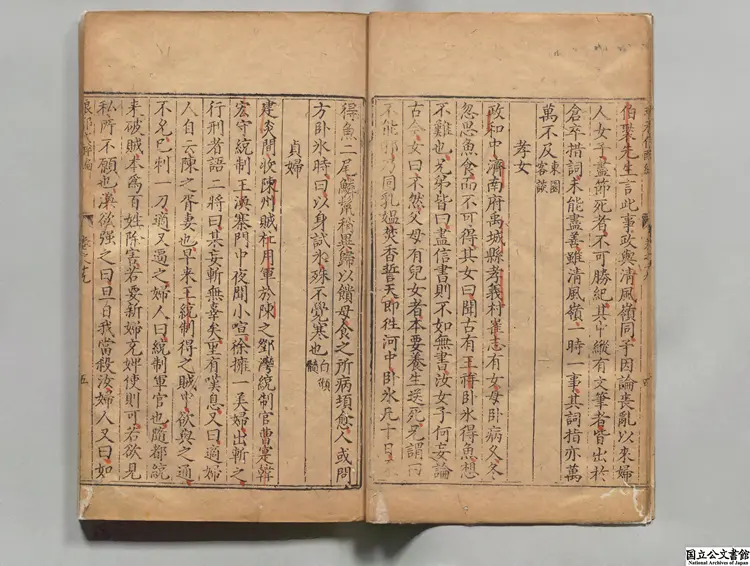 伯裴先生言此事政與清風嶺同予因論喪亂以來婦
人女子盡節死者不可勝紀其中縱有文筆者皆出於
倉卒措詞未能盡善雖清風嶺一時一事其詞指亦萬
萬不及東園客談
孝女
政和中濟南府禹城縣孝義村崔志有女母卧病久冬
忽思魚食而不可得其女曰聞古有王祥卧氷得魚想
不難也兄弟皆曰盡信書則不如無書汝女子何妄論
古今女曰不然父母有兒女者本要養生送死兄謂女
不能耶乃同乳媪焚香誓天即徃河中卧氷凡十日
得魚二尾鱗鬛稍異歸以饋母食之所病頓愈人或問
方卧氷時曰以身試氷殊不覺寒也
貞婦
建炎間收陳州賊杜用軍於陳之鄧灣統制官曹寔韓
宏守統制王漢寨門中夜聞小喧徐擁一美婦出斬之
行刑者語二將曰某妄斬無辜矣里有嘆息又曰適婦
人自云陳之胥妻也早來王統制得之賊中欲與之通
不允巳刺一刀適又逼之婦人曰統制軍官也隨都統
来破賊本爲百姓除害若要新婦充婢使則可若欲見
私所不願也漢欲强之曰旦日我當殺汝婦人又曰如
五
国立公文書館
National Archives of Japan